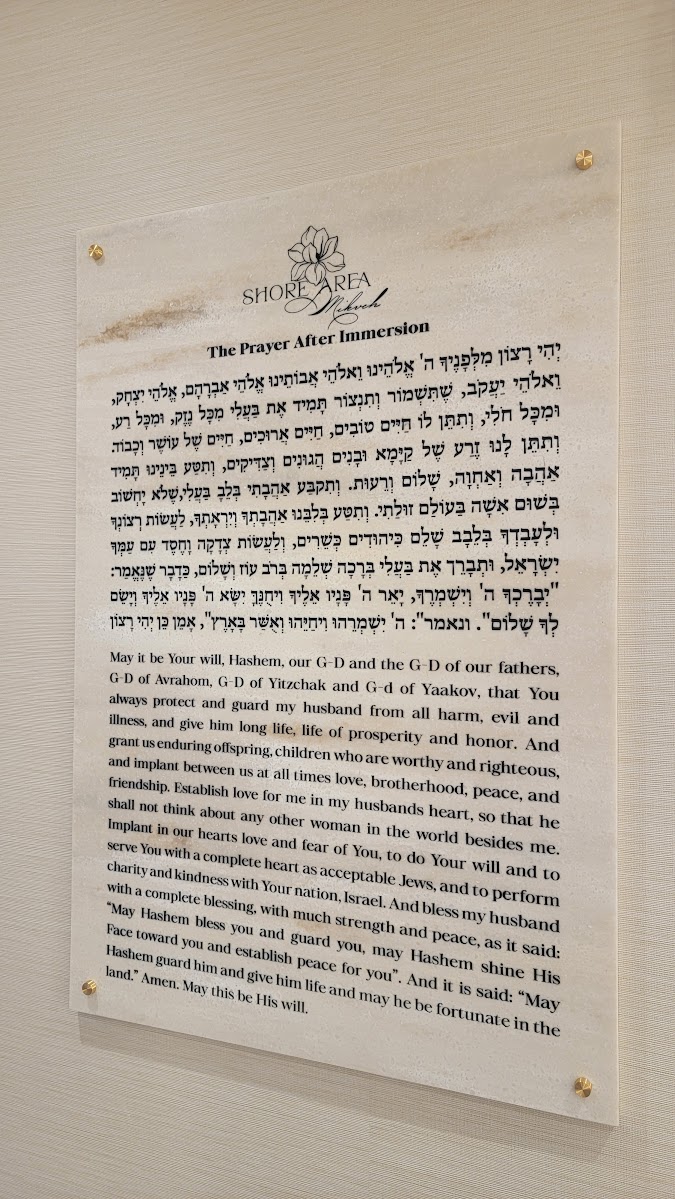 SHORE AREA
Mikveh
The Prayer After Immersion
יְהִי רָצוֹן מִלְּפָנֶיךָ ה' אֱלֹהֵינוּ וֵאלֹהֵי אֲבוֹתֵינוּ אֱלֹהֵי אַבְרָהָם, אֱלֹהֵי יִצְחָק,
וֵאלֹהֵי יַעֲקֹב, שֶׁתִּשְׁמוֹר וְתִנְצוֹר תָּמִיד אֶת בַּעֲלִי מִכָּל נֶזֶק, וּמִכָּל רַע,
וּמִכָּל חֹלִי, וְתִתֵּן לוֹ חַיִּים טוֹבִים, חַיִּים אֲרוּכִים, חַיִּים שֶׁל עוֹשֶׁר וְכָבוֹד.
וְתִתֵּן לָנוּ זֶרַע שֶׁל קַיָּמָא וּבָנִים הֲגוּנִים וְצַדִּיקִים, וְתִטַּע בֵּינֵינוּ תָּמִיד
אַהֲבָה וְאַחֲוָה, שָׁלוֹם וְרֵעוּת. וְתִקְבַּע אַהֲבָתִי בְּלֵב בַּעֲלִי,שֶׁלֹא יַחְשׁוֹב
בְּשׁוּם אִשָּׁה בָּעוֹלָם זוּלָתִי. וְתִטַּע בְּלִבֵּנוּ אַהֲבָתְךָ וְיִרְאָתְךָ, לַעֲשׂוֹת רְצוֹנְךָ
וּלְעָבְדְךָ בְּלֵבָב שָׁלֵם כִּיהוּדִים כְּשֵׁרִים, וְלַעֲשׂוֹת צְדָקָה וָחֶסֶד עִם עַמְּךָ
יִשְׂרָאֵל, וּתְבָרֵךְ אֶת בַּעֲלִי בְּרָכָה שְׁלֵמָה בְּרֹב עוֹז וְשָׁלוֹם, כַּדָּבָר שֶׁנֶּאֱמַר:
"יְבָרֶכְךָ ה' וְיִשְׁמְרֶךָ, יָאֵר ה' פָּנָיו אֵלֶיךָ וִיחֻנֶּךָּ יִשָּׂא ה' פָּנָיו אֵלֶיךָ וְיָשֵׂם
לְךָ שָׁלוֹם". ונאמר": ה' יִשְׁמְרֵהוּ וִיחַיֵּהוּ וְאֻשַּׁר בָּאָרֶץ", אָמֵן כֵּן יְהִי רָצוֹן
May it be Your will, Hashem, our G-D and the G-D of our fathers,
G-D of Avrahom, G-D of Yitzchak and G-d of Yaakov, that You
always protect and guard my husband from all harm, evil and
illness, and give him long life, life of prosperity and honor. And
grant us enduring offspring, children who are worthy and righteous,
and implant between us at all times love, brotherhood, peace, and
friendship. Establish love for me in my husbands heart, so that he
shall not think about any other woman in the world besides me.
Implant in our hearts love and fear of You, to do Your will and to
serve You with a complete heart as acceptable Jews, and to perform
charity and kindness with Your nation, Israel. And bless my husband
with a complete blessing, with much strength and peace, as it said:
"May Hashem bless you and guard you, may Hashem shine His
Face toward you and establish peace for you". And it is said: "May
Hashem guard him and give him life and may he be fortunate in the
land." Amen. May this be His will.